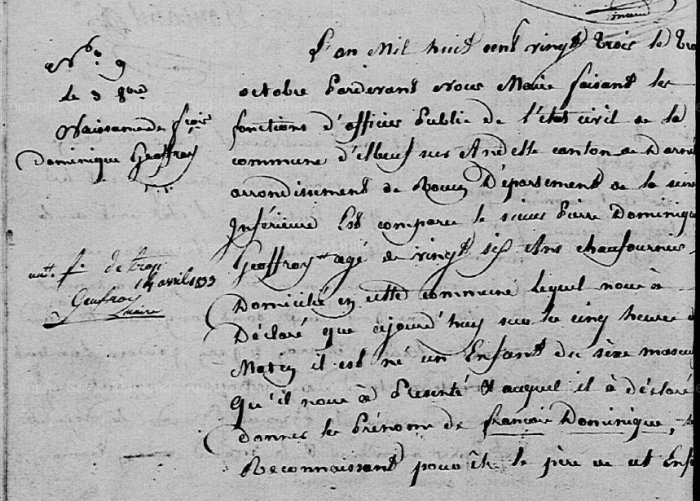 N.° 9
le 3 8bre
Naissance de frcois
Dominique Geoffroy
L'an Mil huit cent vingt trois le tro
octobre Pardevant nous Maire faisant les
fonctions d'officier Public de l'état civil de la
commune d'Elbeuf sur Andelle canton de Darne
arrondissement de Rouen Département de la sein
Inférieure Est comparu le sieur Pierre Dominique
Geoffroy agé de vingt six Ans chaufournier
Domicilié en cette commune lequel nous à
Déclaré que cejourd'huy sur le cinq heure d
Matin il est né un Enfant du sexe mascul
Qu'il nous à Présenté Et auquel il à déclaré
donner les Prénoms de françois Dominique, 
Reconnaissant pour être le père de cet Enf
f. de trop
14 avril 1833
Geufroy
Maire